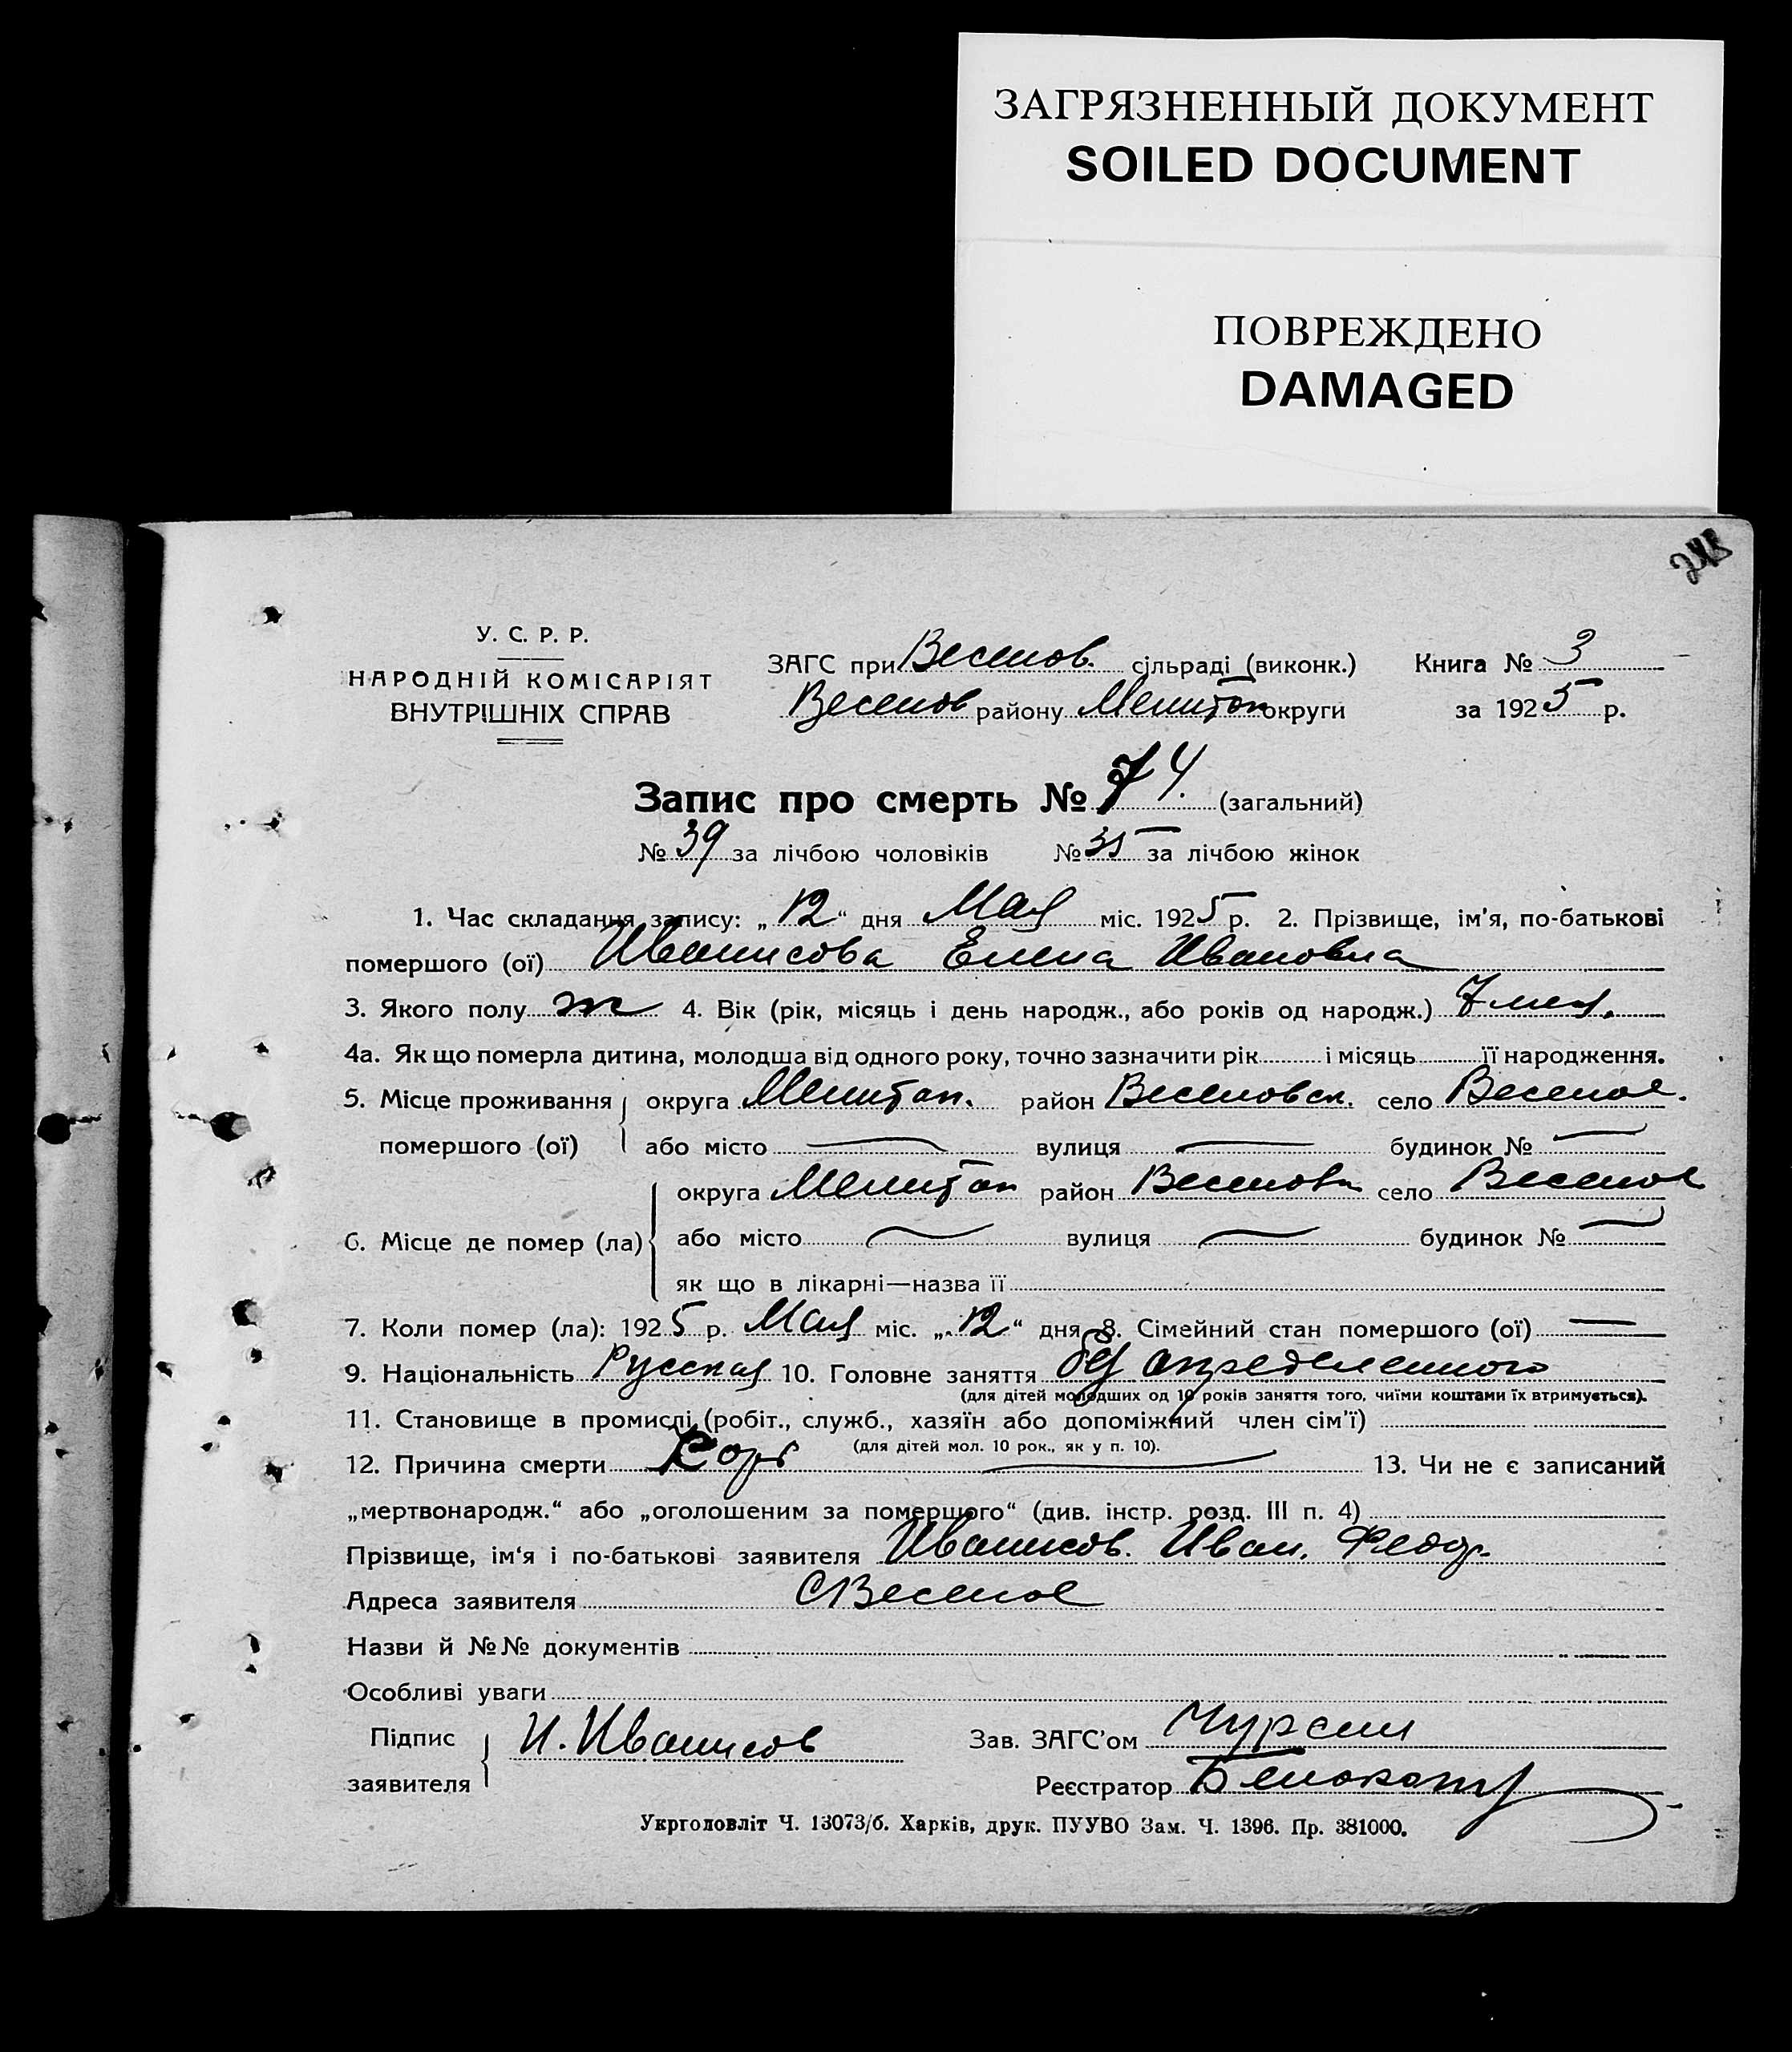 ЗАГРЯЗНЕННЫЙ ДОКУМЕНТ
SOILED DOCUMENT
ПОВРЕЖДЕНО
DAMAGED
У. С. Р. Р.
НАРОДНІЙ КОМІСАРІЯТ
ВНУТРІШНІХ СПРАВ
ЗАГС при Веселов. сільраді (виконк.) Книга № 3
Веселов району Мелитоп округи за 1925 р.
Запис про смерть № 74. (загальний)
№ 39 за лічбою чоловіків № 35 за лічбою жінок
1. Час складання запису: „12“ дня Мая міс. 1925 р. 2. Прізвище, ім'я, по-батькові
помершого (ої) Иванисова Елена Ивановна
3. Якого полу ж 4. Вік (рік, місяць і день народж., або років од народж.) 7 мес.
4а. Як що померла дитина, молодша від одного року, точно зазначити рік і місяць її народження.
5. Місце проживання округа Мелитоп. район Веселовск. село Веселое.
помершого (ої) або місто — вулиця — будинок № —
округа Мелитоп район Веселовск село Веселое
6. Місце де помер (ла) або місто — вулиця — будинок № —
як що в лікарні—назва її
7. Коли помер (ла): 1925 р. Мая міс. „12“ дня 8. Сімейний стан помершого (ої) —
9. Національність Русская 10. Головне заняття без определенного
(для дітей молодших од 10 років заняття того, чиїми коштами їх втримується).
11. Становище в промислі (робіт., служб., хазяїн або допоміжний член сім'ї)
(для дітей мол. 10 рок., як у п. 10).
12. Причина смерти Корь — 13. Чи не є записаний
„мертвонародж.“ або „оголошеним за померщого“ (див. інстр. розд. III п. 4)
Прізвище, ім'я і по-батькові заявителя Иванисов. Иван. Федор.
Адреса заявителя С Веселое
Назви й №№ документів
Особливі уваги
Підпис И. Иванисов Зав. ЗАГС'ом Чурсин
заявителя Реєстратор
Укрголовліт Ч. 13073/б. Харків, друк. ПУУВО Зам. Ч. 1396. Пр. 381000.